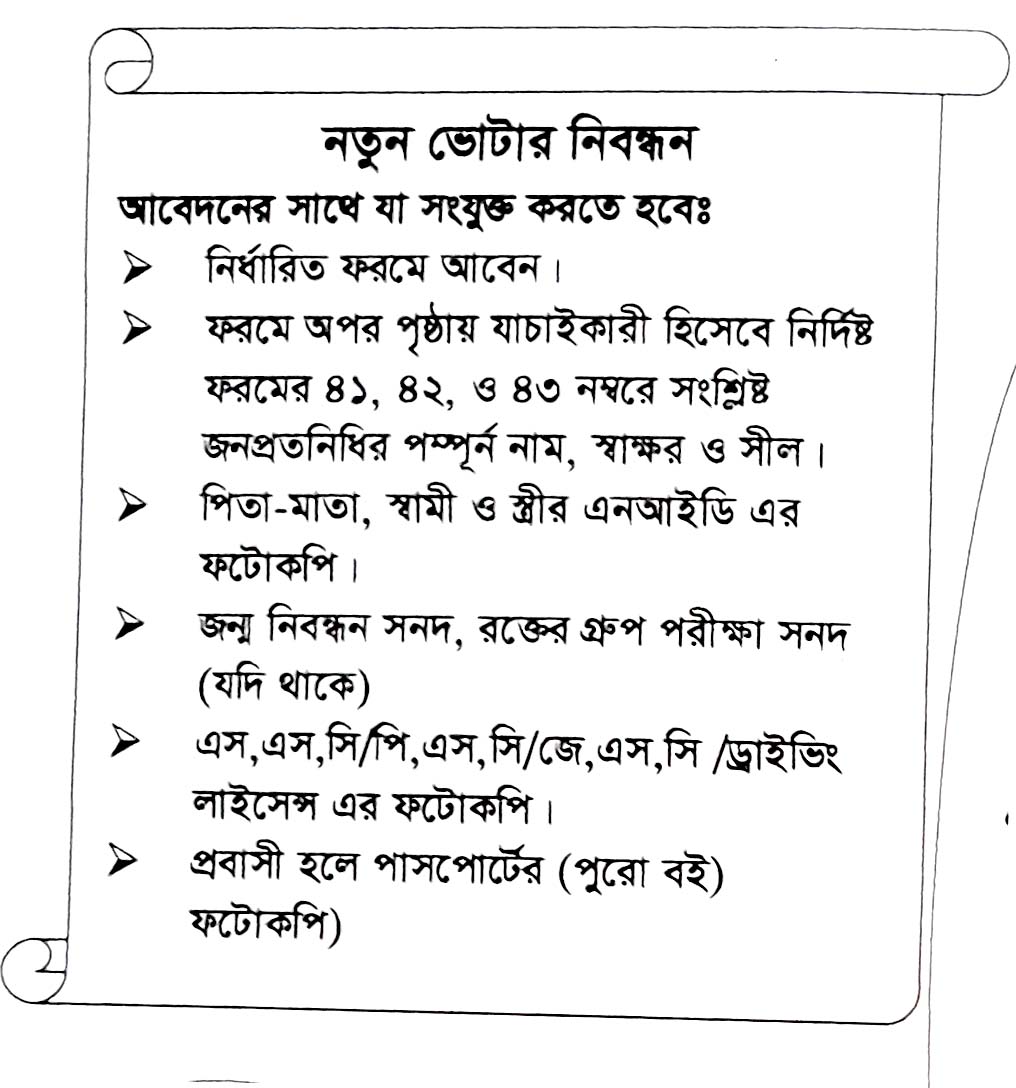 নতুন ভোটার নিবন্ধন
আবেদনের সাথে যা সংযুক্ত করতে হবেঃ
➢ নির্ধারিত ফরমে আবেন।
➢ ফরমে অপর পৃষ্ঠায় যাচাইকারী হিসেবে নির্দিষ্ট
ফরমের ৪১, ৪২, ও ৪৩ নম্বরে সংশ্লিষ্ট
জনপ্রতনিধির পম্পূর্ন নাম, স্বাক্ষর ও সীল।
➢ পিতা-মাতা, স্বামী ও স্ত্রীর এনআইডি এর
ফটোকপি।
➢ জন্ম নিবন্ধন সনদ, রক্তের গ্রুপ পরীক্ষা সনদ
(যদি থাকে)
➢ এস,এস,সি/পি,এস,সি/জে,এস,সি /ড্রাইভিং
লাইসেন্স এর ফটোকপি।
➢ প্রবাসী হলে পাসপোর্টের (পুরো বই)
ফটোকপি)